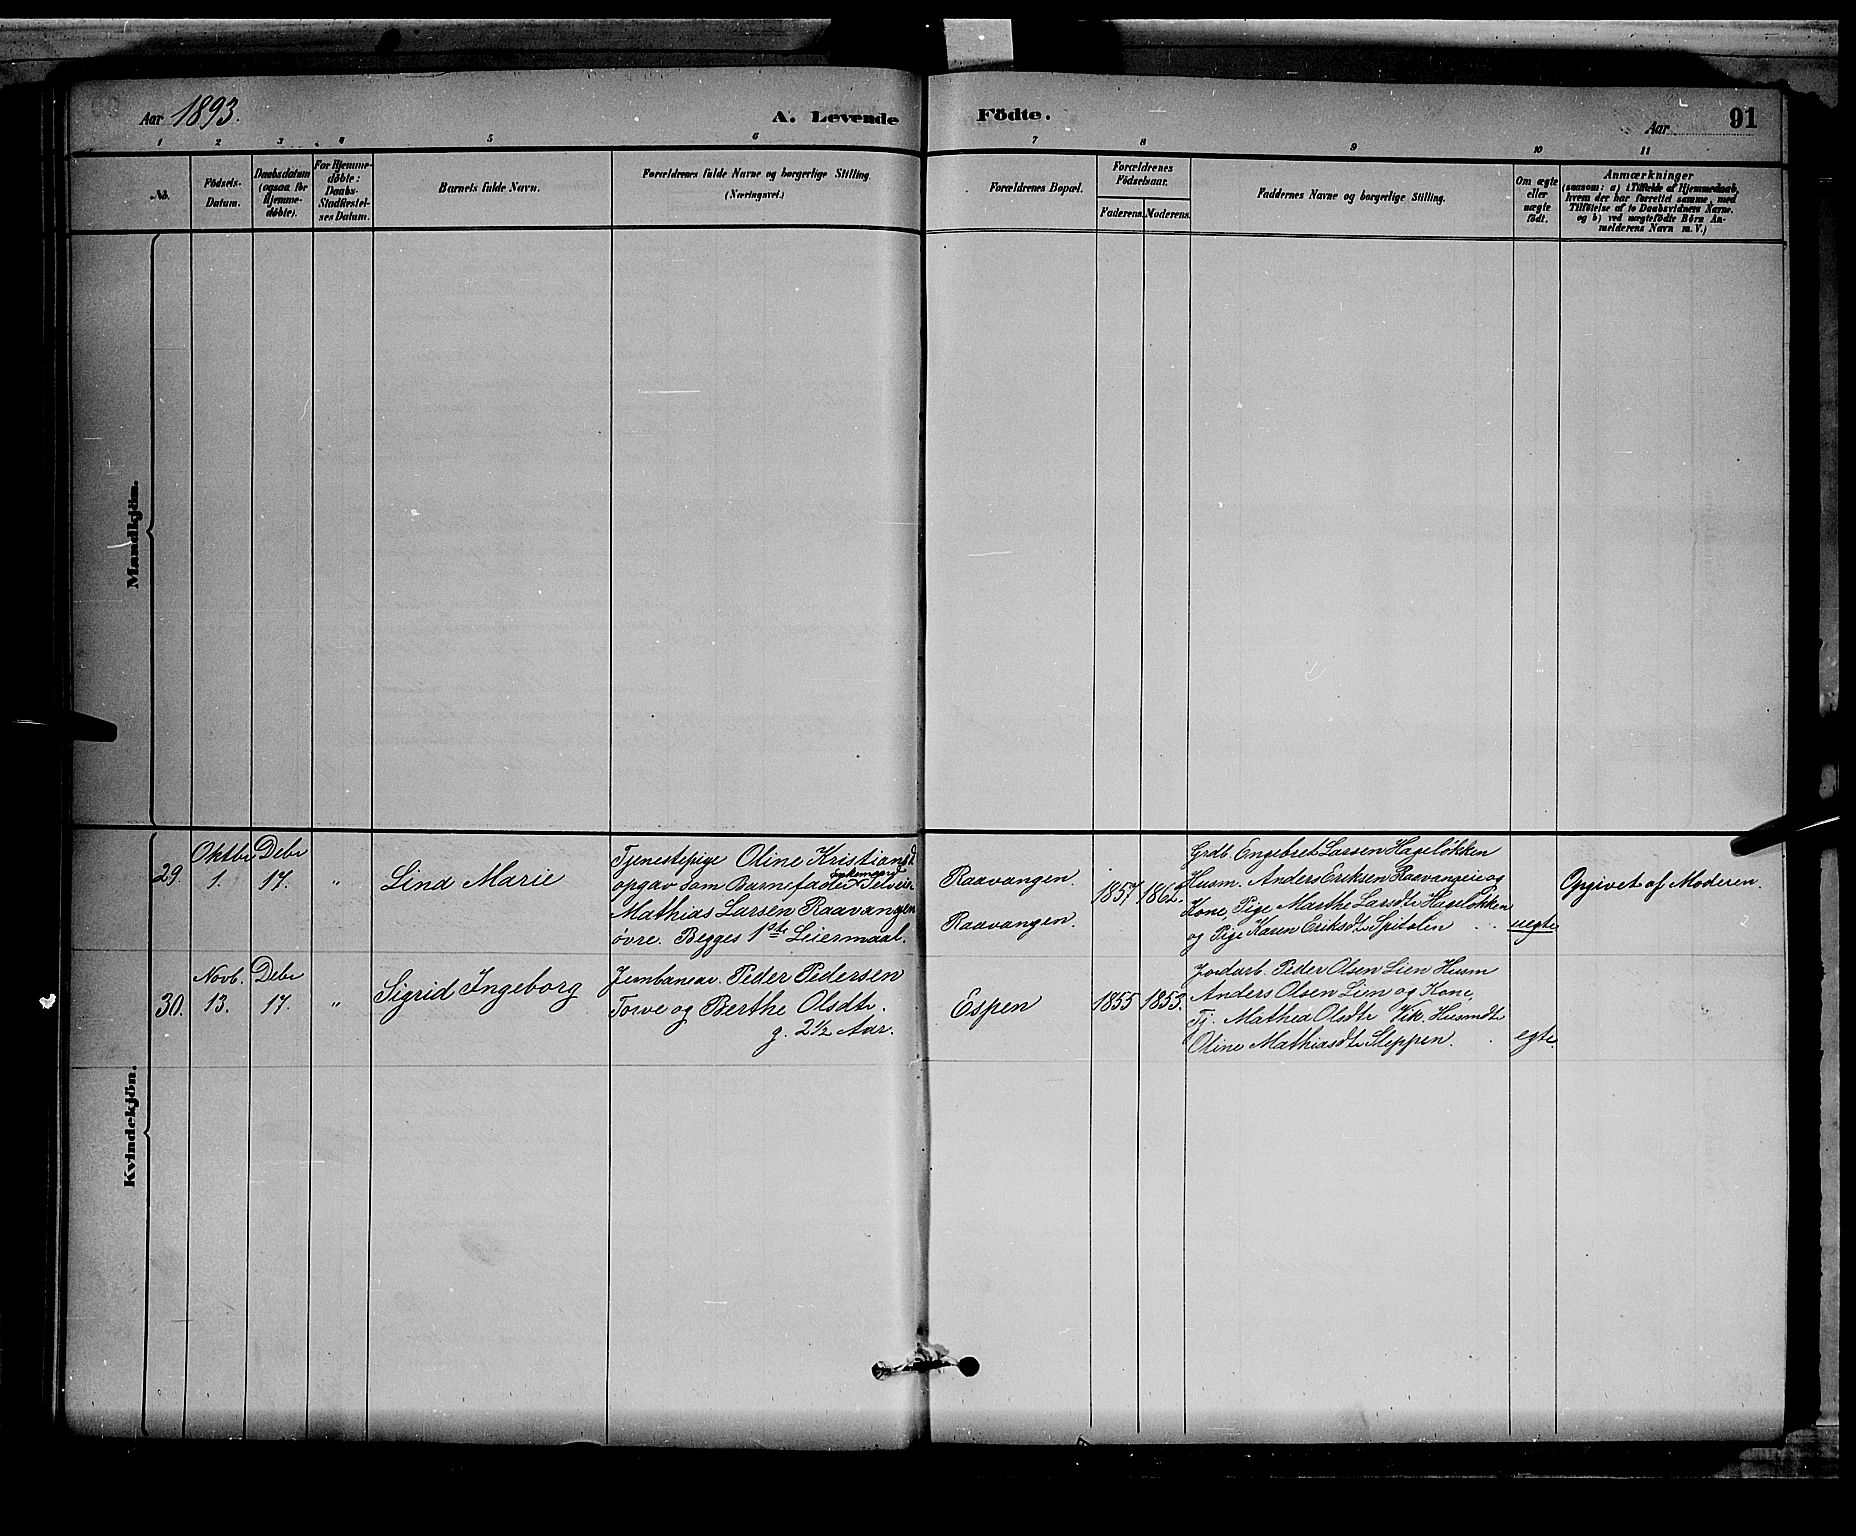 Aar 1893.
A. Levende Födte.
Aar
91
1 2 3 4 5 6 7 8 9 10 11
No.
Födsels-
Datum.
Daabsdatum
(ogsaa for
Hjemme-
døbte).
For Hjemme-
døbte:
Daabs-
Stadfæstel-
ses Datum.
Barnets fulde Navn.
Forældrenes fulde Navne og borgerlige Stilling
(Næringsvei.)
Forældrenes Bopæl.
Forældrenes
Födselsaar.
Faderens. Moderens.
Faddernes Navne og borgerlige Stilling.
Om ægte
eller
uægte
født.
Anmærkninger
(saasom: a) i Tilfælde af Hjemmedaab,
hvem der har forrettet samme, med
Tilføielse af to Daabsvidners Navne.
og b) ved uægtefødte Börn An-
melderens Navn m. V.)
Mandkjön.
Kvindekjön.
29.
Oktbr
1.
Debr
17.
"
Lina Marie
Tjenestepige Oline Kristiansd
opgav som Barnefader Selveier
Mathias Larsen Raavangen
øvre. Begges 1ste Leiermaal.
Raavangen.
Raavangen.
1857
1862.
Grdb. Engebret Larsen Hageløkken
Husm. Anders Eriksen Raavangeie og
Kone, Pige Marthe Larsdtr Hageløkken
og Pige Karen Eriksdtr Spitalen
uegte
Opgivet af Moderen.
30.
Novb.
13.
Debr
17.
"
Sigrid Ingeborg
Jernbanear. Peder Pedersen
Towe og Berthe Olsdtr.
g. 2½ Aar.
Espen
1855
1853.
Jordarb. Peder Olsen Lien Husm
Anders Olsen Lien og Kone,
Tj. Mathea Olsdtr Vik. Husmdtr
Oline Mathiasdtr Steppen.
egte.